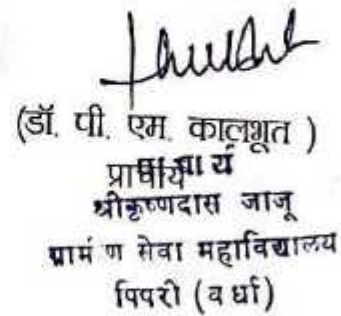 (डॉ. पी. एम. कालभूत )
प्राचार्य
श्रीकृष्णदास जाजू
ग्रामीण सेवा महाविद्यालय
पिपरी (वर्धा)